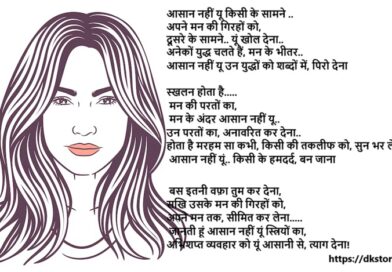 आसान नहीं यू किसी के सामने ..
अपने मन की गिरहों को,
दूसरे के सामने.. यूं खोल देना..
अनेकों युद्ध चलते हैं, मन के भीतर..
आसान नहीं यू उन युद्धों को शब्दों में, पिरो देना
स्खलन होता है.....
मन की परतों का,
मन के अंदर आसान नहीं यू..
उन परतों का, अनावरित कर देना..
होता है मरहम सा कभी, किसी की तकलीफ को, सुन भर ले
आसान नहीं यूं.. किसी के हमदर्द, बन जाना
बस इतनी वफ़ा तुम कर देना,
सखि उसके मन की गिरहों को,
अपने मन तक, सीमित कर लेना.....
जानती हूं आसान नहीं यूं स्त्रियों का,
अभिशप्त व्यवहार को यूं आसानी से, त्याग देना!
https://dkstor